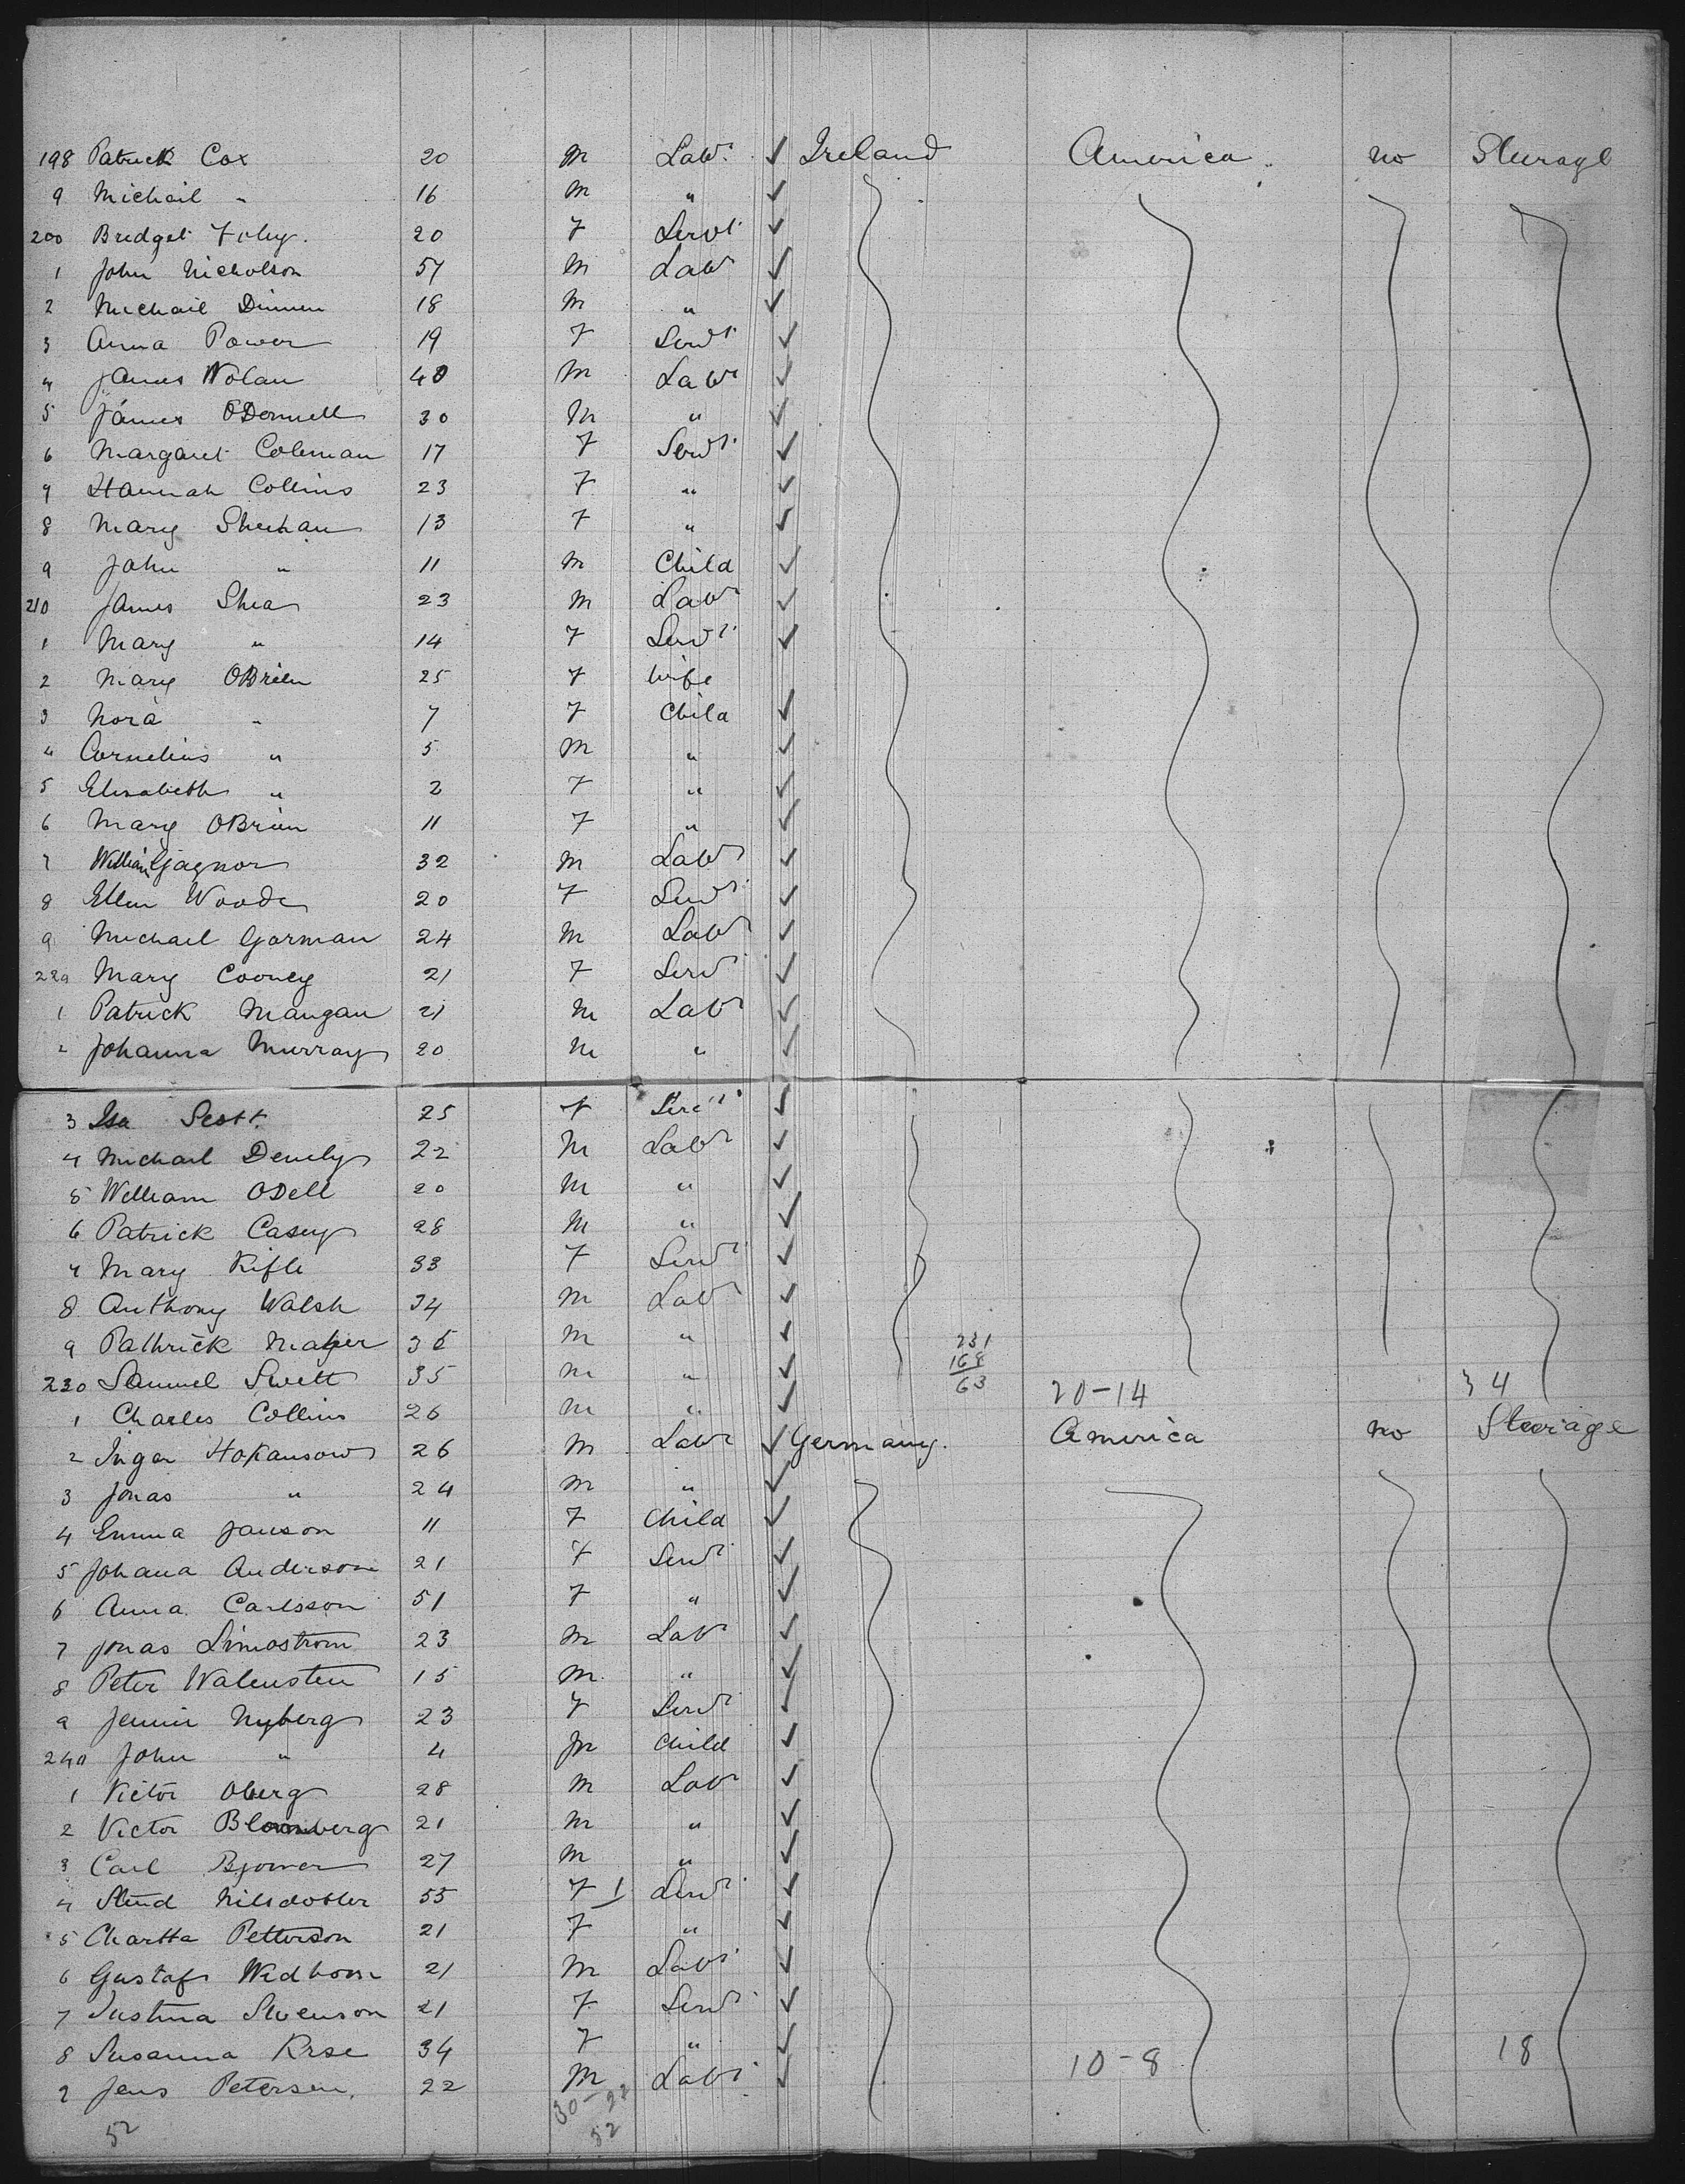 198 Patrick Cox 20 m Labr. ✓ Ireland America no Steerage
9 Michail " 16 m " ✓
200 Bridget Foley. 20 F Servt ✓
1 John Nicholson 57 m Labr ✓
2 Michail Dinnen 18 m " ✓
3 Anna Power 19 F Servt ✓
4 James Nolan 40 m Labr ✓
5 James ODonnell 30 m " ✓
6 Margaret Coleman 17 F Servt ✓
7 Hannah Collins 23 F " ✓
8 Mary Sheehan 13 F " ✓
9 John " 11 m Child ✓
210 James Shea 23 m Labr ✓
1 Mary " 14 F Servt ✓
2 Mary OBrien 25 F Wife
3 Nora " 7 F Child ✓
4 Cornelius " 5 m " ✓
5 Elisabeth " 2 F " ✓
6 Mary OBrien 11 F " ✓
7 William 32 m Labr ✓
8 Ellen Woods 20 F Servt ✓
9 Michael Gorman 24 m Labr ✓
220 Mary Cooney 21 F Servt ✓
1 Patrick Mangan 21 m Labr ✓
2 Johanna Murray 20 m " ✓
3 Isa Scott. 25 F Servt ✓
4 Michael 22 m Labr ✓
5 William ODell 20 m " ✓
6 Patrick Casey 28 m " ✓
7 Mary Rifle 33 F Servt ✓
8 Anthony Walsh 34 m Labr ✓
9 Pathrick Maher 36 m " ✓ 231
168
230 Samuel Swett 35 m " ✓ 63 20-14 34
1 Charles Collins 26 m " ✓
2 Inger Hokanson 26 m Labr ✓ Germany. America no Steerage
3 Jonas " 24 m " ✓
4 Emma Janson 11 F Child ✓
5 Johana Anderson 21 F Servt ✓
6 Anna Carlsson 51 F " ✓
7 Jonas Limostrom 23 m Labr ✓
8 Peter Walensten 15 m " ✓
9 Jennie Nyberg 23 F Servt ✓
240 John " 4 m Child ✓
1 Victor Oberg 28 m Labr ✓
2 Victor Blomberg 21 m " ✓
3 Carl 27 m " ✓
4 Nilsdotter 55 F 1 Servt ✓
5 Chartta Petterson 21 F " ✓
6 Gustaf Wedhom 21 m Labr ✓
7 Justina Swenson 21 F Servt ✓
8 Susanna 34 F " ✓ 10-8 18
9 Jens Petersen. 22 m Labr ✓
52 30-22
52